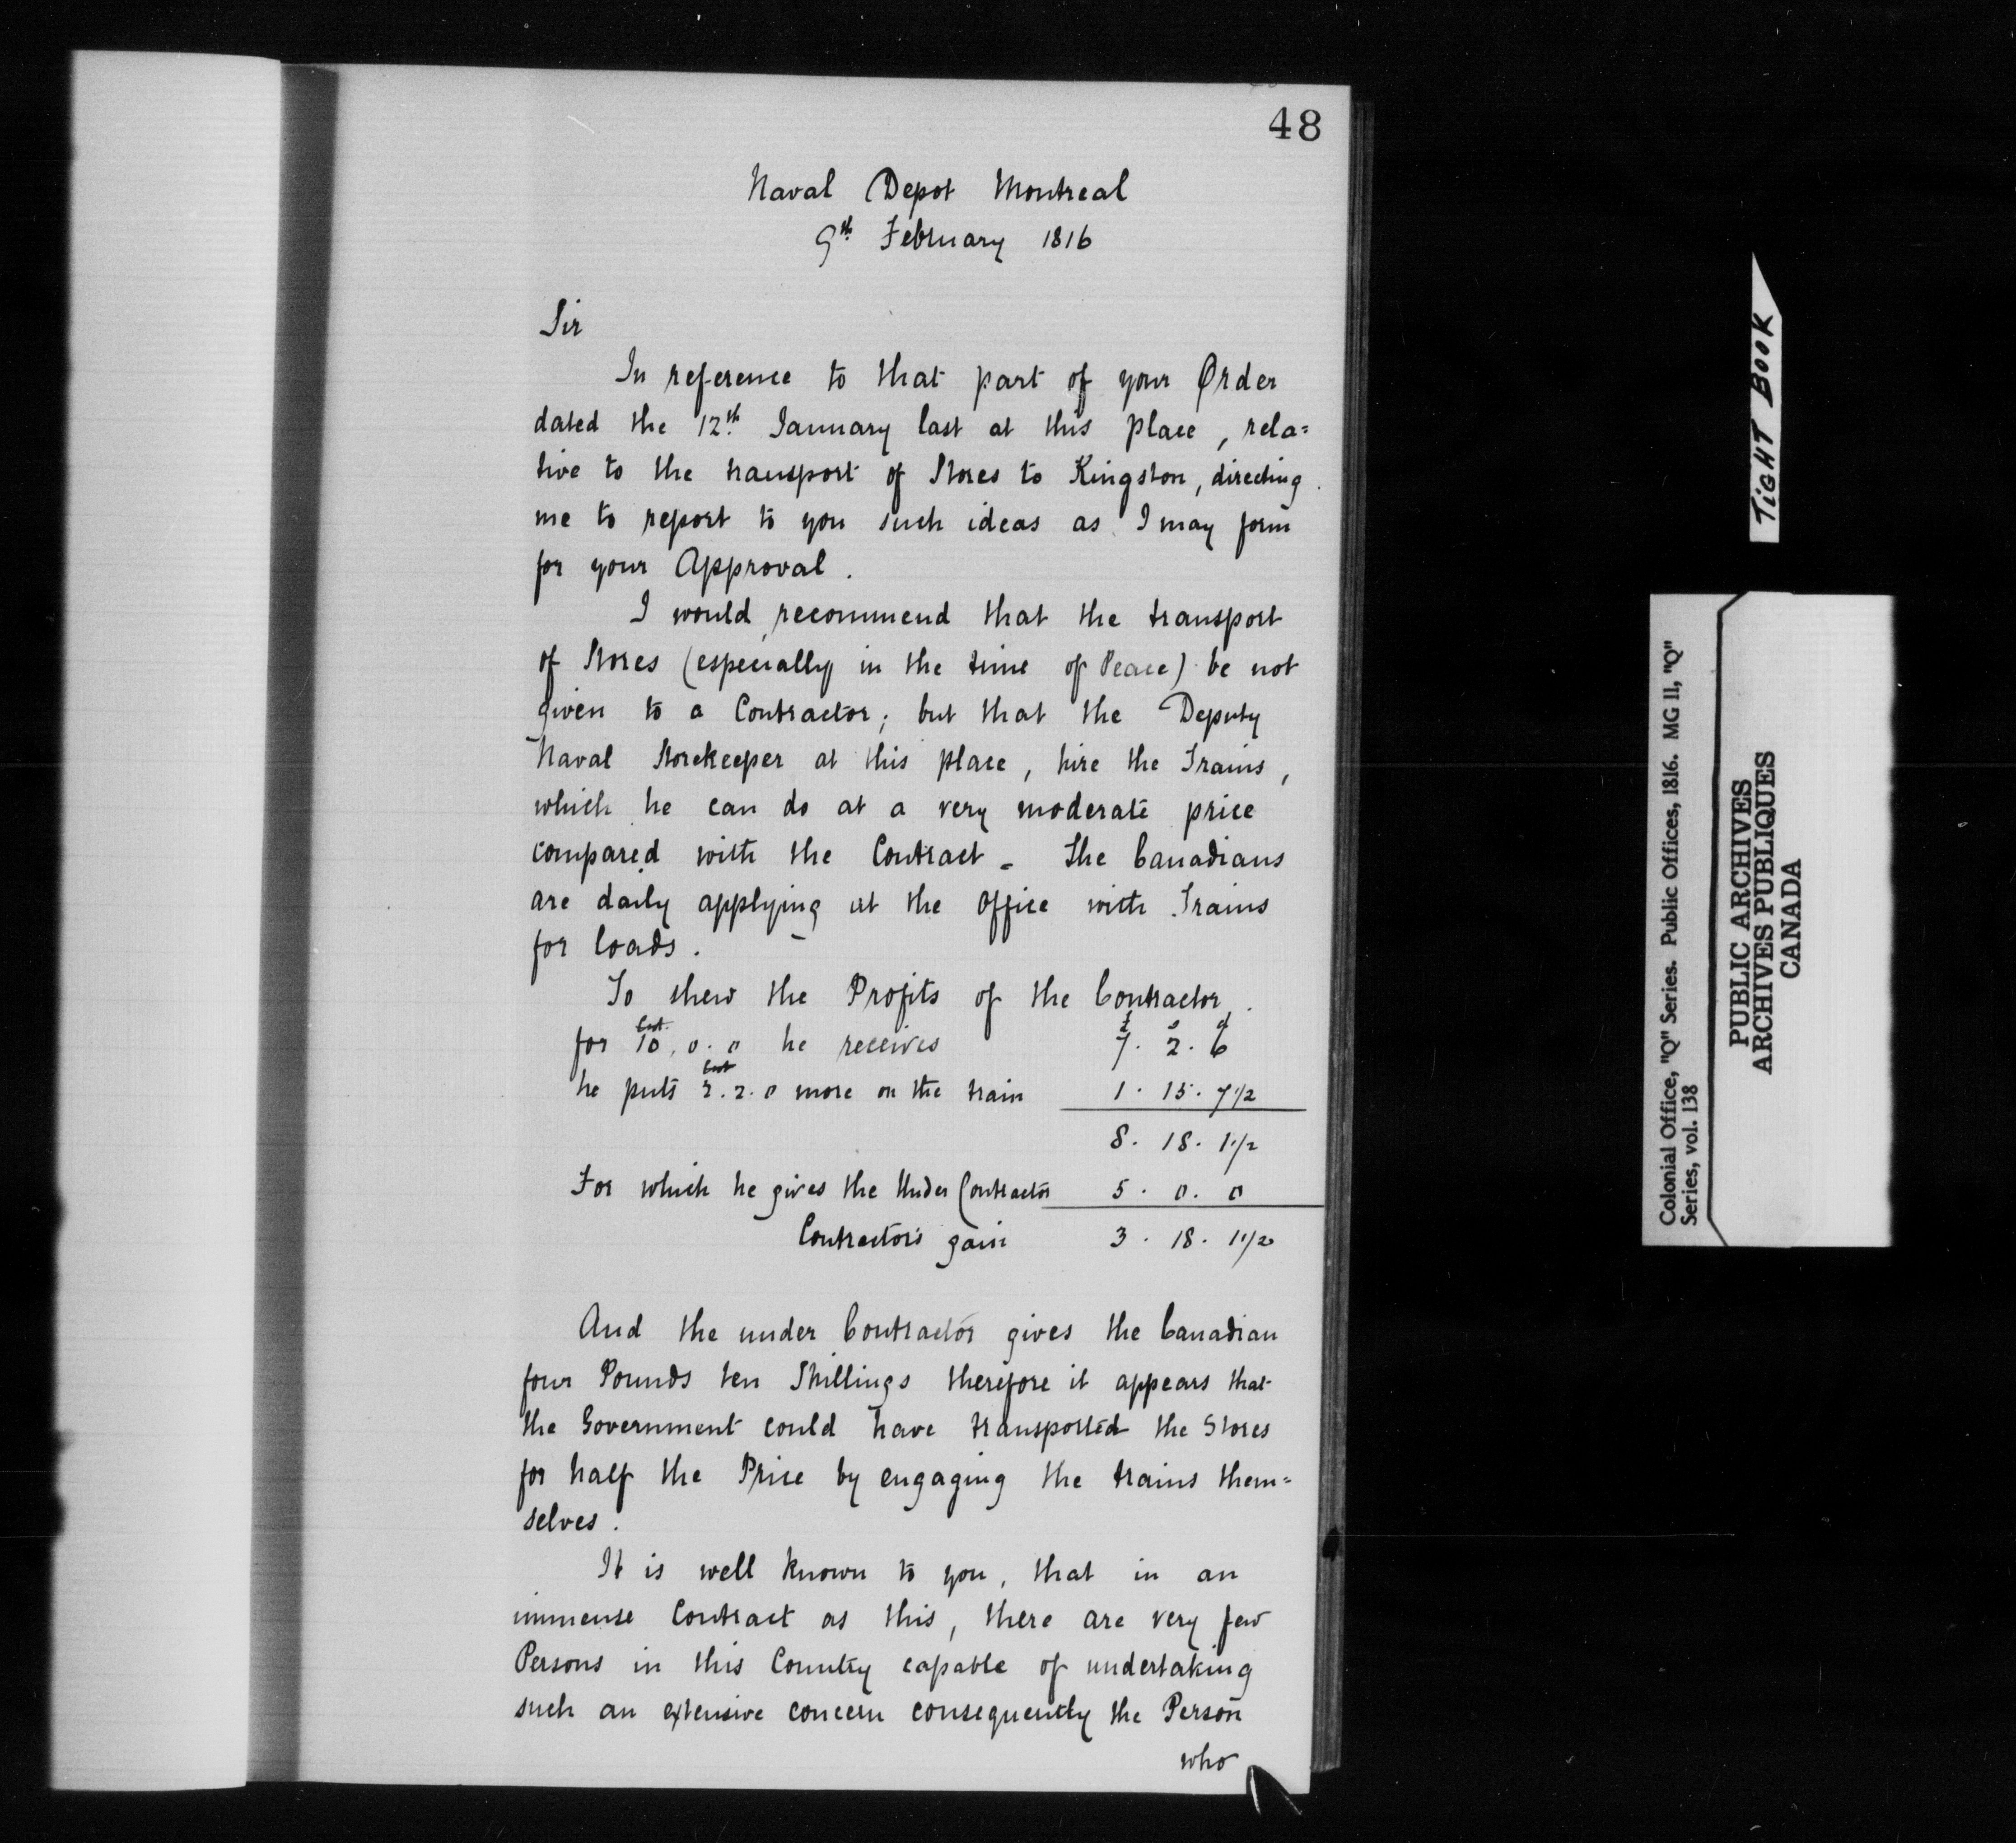 48
Naval Depot Montreal
9th February 1816
Sir
In reference to that part of your Order
dated the 12th January last at this place, rela=
tive to the transport of Stores to Kingston, directing
me to report to you such ideas as I may form
for your Approval.
I would recommend that the transport
of Stores (especially in the time of Peace) be not
given to a Contractor; but that the Deputy
Naval Storekeeper at this place, hire the Trains,
which he can do at a very moderate price
compared with the Contract - The Canadians
are daily applying at the office with Trains
for loads. -
To shew the Profits of the Contractor.
£ s d
for 10 Cwt. 0. 0 he receives 7. 2. 6
he puts 2 Cwt. 2. 0 more on the train 1. 15. 7 1/2
8. 18. 1 1/2
For which he gives the Under Contractor 5. 0. 0
Contractor's gain 3. 18. 1 1/2
And the under Contractor gives the Canadian
four Pounds ten Shillings therefore it appears that
the Government could have transported the Stores
for half the Price by engaging the trains them=
selves.
It is well known to you, that in an
immense Contract as this, there are very few
Persons in this Country capable of undertaking
such an extensive concern consequently the Person
who
TIGHT BOOK
Colonial Office, "Q" Series. Public Offices, 1816. MG 11, "Q"
Series, vol. 138
PUBLIC ARCHIVES
ARCHIVES PUBLIQUES
CANADA